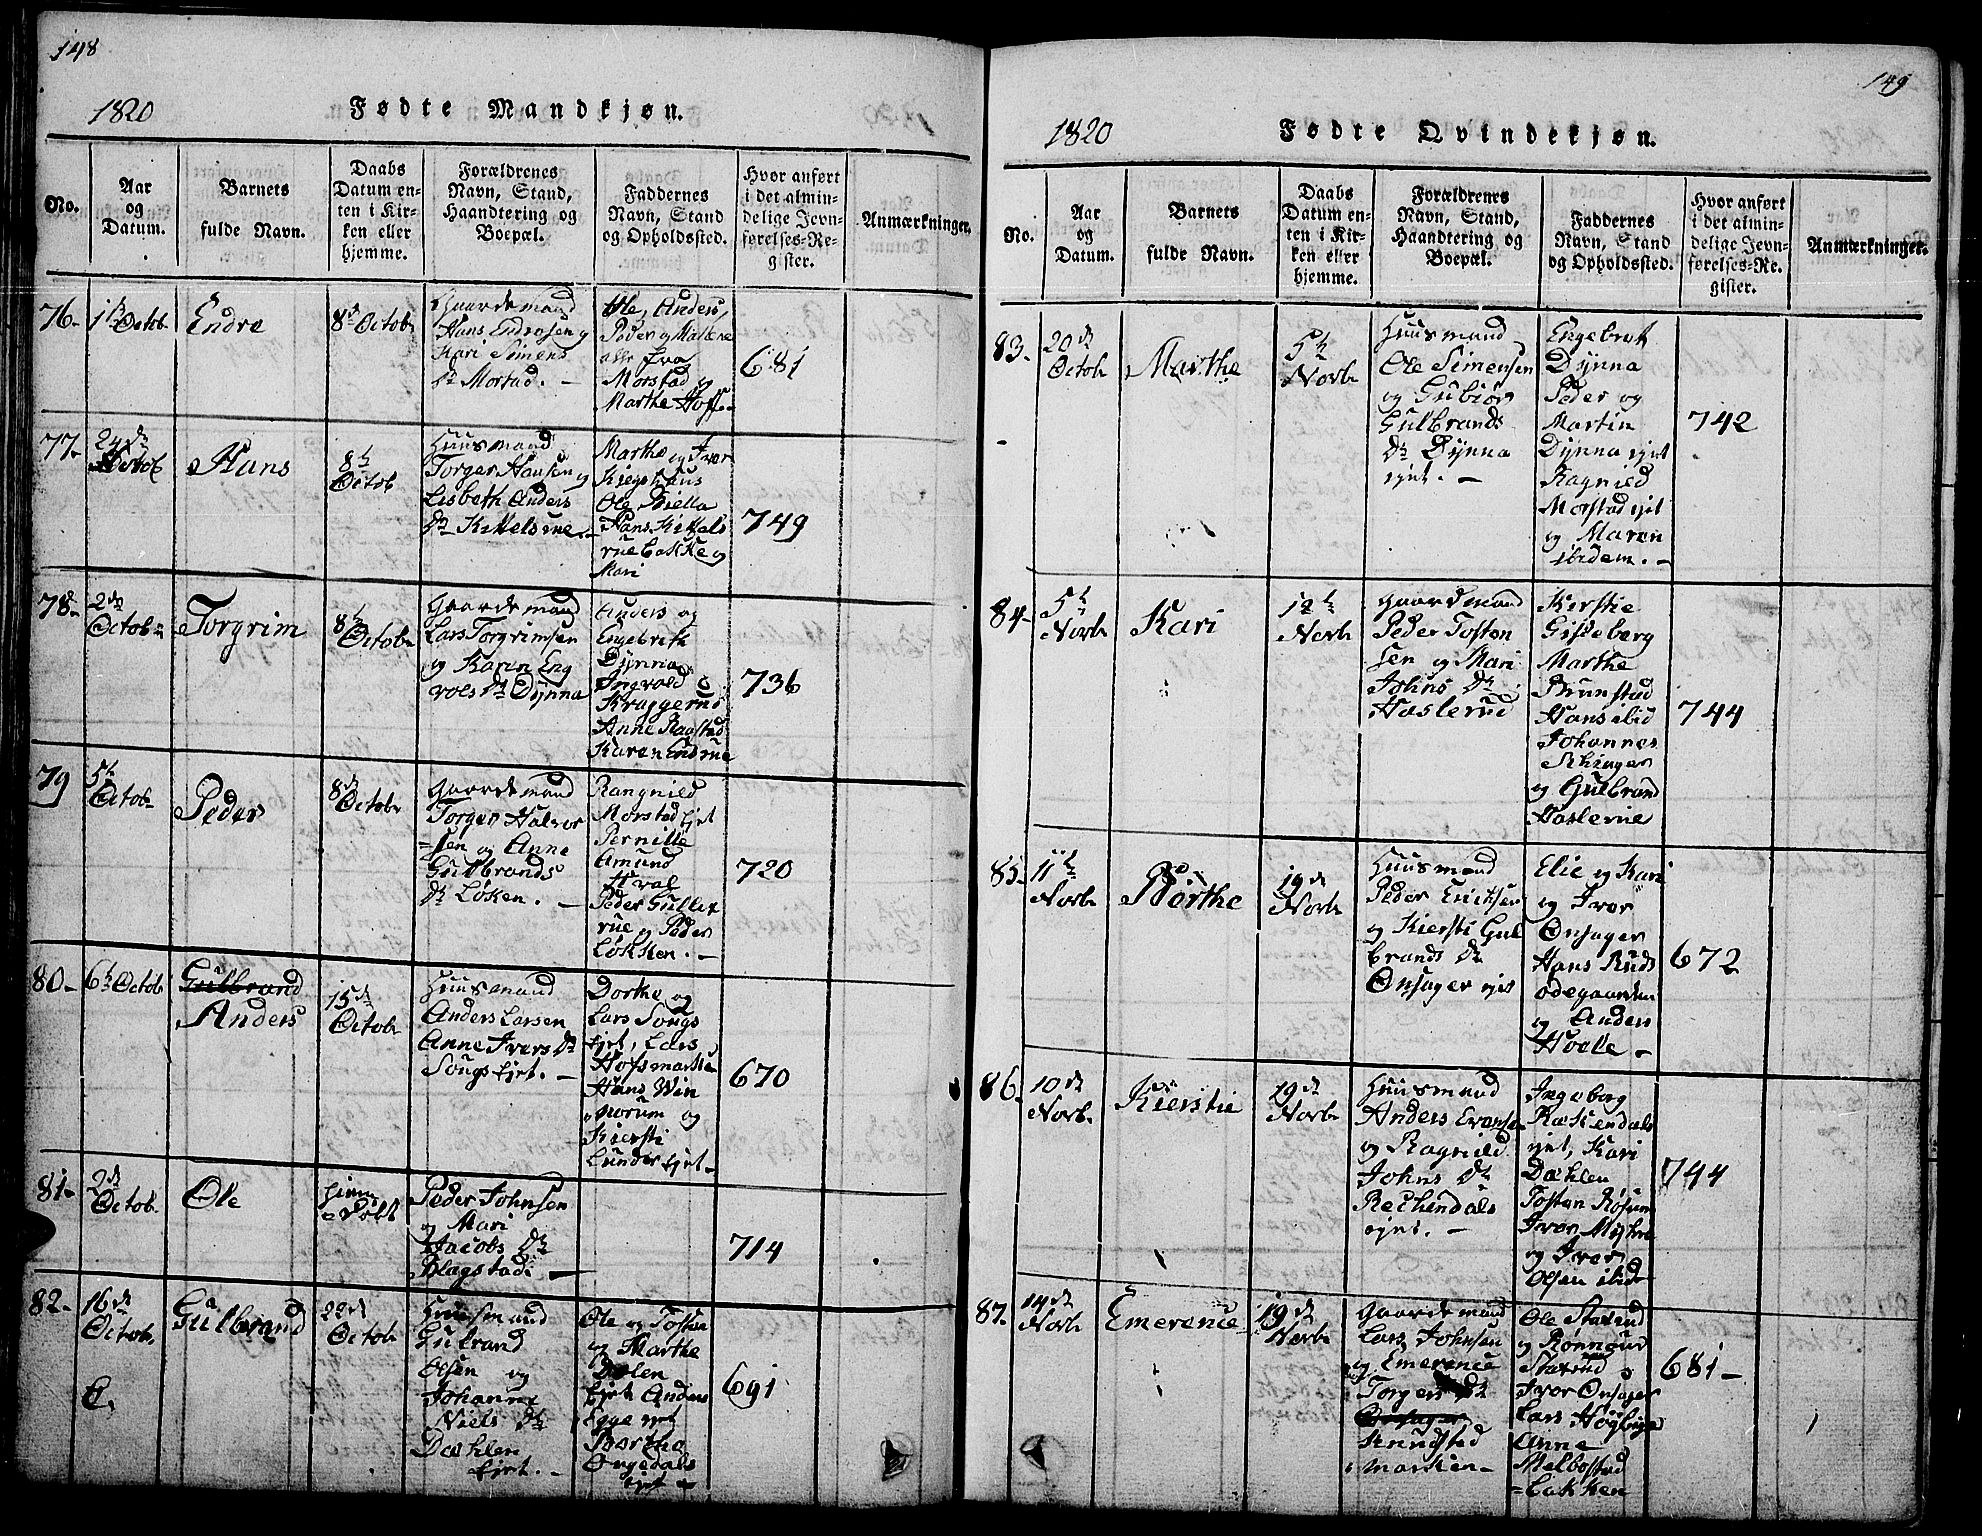 148
1820
Fødte Mandkjøn.
No.
Aar
og
Datum.
Barnets
fulde Navn.
Daabs
Datum en-
ten i Kir-
ken eller
hjemme.
Forældrenes
Navn, Stand,
Haandtering og
Boepæl.
Faddernes
Navn, Stand
og Opholdssted.
Hvor anført
i det almin-
delige Jevn-
førelses-Re-
gister.
Anmærkninger.
76-
1st Octob
Endre
8d Octob
Gaardemand
Hans Endresen og
Kari Simens
Dr Morstad. -
Ole, Anders,
Peder og Marlene
alle fra
Morstad og
Marthe Hoff.
681
77-
24de
Octob
Hans
8d
Octob
Huusmand
Torger Hansen og
Lisbeth Anders
Dr Kittelsrue. -
Marthe og Iver
Kiegshuus
Ole Bielle
Hans Kittels
rue bakke og
Mari
749
78-
2de
Octob
Torgrim
8d
Octob
Gaardemand
Lars Torgrimsen
og Karen Eng
vols Dr Dynna
Anders og
Engebreth
Dynna
Ingvold
Kraggerud
Anne Raastad
Karen Endrue
736
79
5t
Octob
Peder
8de
Octob
Gaardemand
Torger Halvor
=sen og Anne
Gulbrands
Dr Løken. -
Rangnild
Morstad Ejet
Pernille
Amund
Hval
Peder Gullix
rue og Peder
Løkken. -
720
80-
6t Octob
Gulbrand
Anders
15de
Octob
Huusmand
Anders Larsen
Anne Ivers Dr
Sougs Ejet. -
Dorthe og
Lars Sougs
Ejet, Lars
Hofsmarken
Hans Win
norum og
Kiersti
Lunder Ejet -
670
81-
2de
Octob
Ole
hiem
døbt
Peder Johnsen
og Mari
Jacobs Dr
Blagstad. -
714
82-
16de
Octob.
C.
Gulbrand
22de
Octob
Huusmand
Gulbrand
Olsen og
Johanne
Niels Dr
Dæhlen
Ejet. -
Ole og Tosten
og Marthe
Dælen
Ejet Anders
Egge ejet
Barthe
Ongedals
Ejet -
691
149
1820
Fødte Qvindekjøn.
No.
Aar
og
Datum.
Barnets
fulde Navn.
Daabs
Datum en-
ten i Kir-
ken eller
hjemme.
Forældrenes
Navn, Stand,
Haandtering og
Boepæl.
Faddernes
Navn, Stand
og Opholdssted.
Hvor anført
i det almin-
delige Jevn-
førelses-Re-
gister.
Anmærkninger.
83-
20de
Octob
Marthe
5t
Novb
Huusmand
Ole Simensen
og Gubiør
Gulbrands
Dr Dynna
ejet. -
Engebret
Dynna
Peder og
Martin
Dynna ejet
Ragnild
Morstad ejet
og Maren
ibidem. -
742
84-
5t
Novb
Kari
12t
Novb
Gaardmand
Peder Tosten
sen og Mari
Johns Dr
Haslerud
Kirstie
Gisleberg
Marthe
Brunstad
Hans ibid
Johannes
og Gulbrand
Haslerue
744
85-
11t
Novb
Børthe
19de
Novb
Huusmand
Peder Eriksen
og Kiersti Gul
brands Dr
Onsager ejet
Elie og Kari
og Iver
Onsager
Hans Ruds
ødegaarden
og Anders
Hvale -
672
86.
10de
Novb
Kierstie
19de
Novb
Huusmand
Anders Evensen
og Ragnild
Johns Dr
Rechendals
ejet. -
Ingeborg
Rækkendals
ejet, Kari
Dæhlen
Tosten Røsum
Iver
og Iver
Olsen ibid
744
87.
14de
Novb
Emerence
19de
Novb
Gaardemand
Lars Johnsen
og Emerence
Torgers Dr
Onsager
Knudstad
marken -
Ole Staxrud
og Rønnaug
Staxrud
Iver Onsager
Lars Høybye
Anne
Melbostad
=bakken
681-